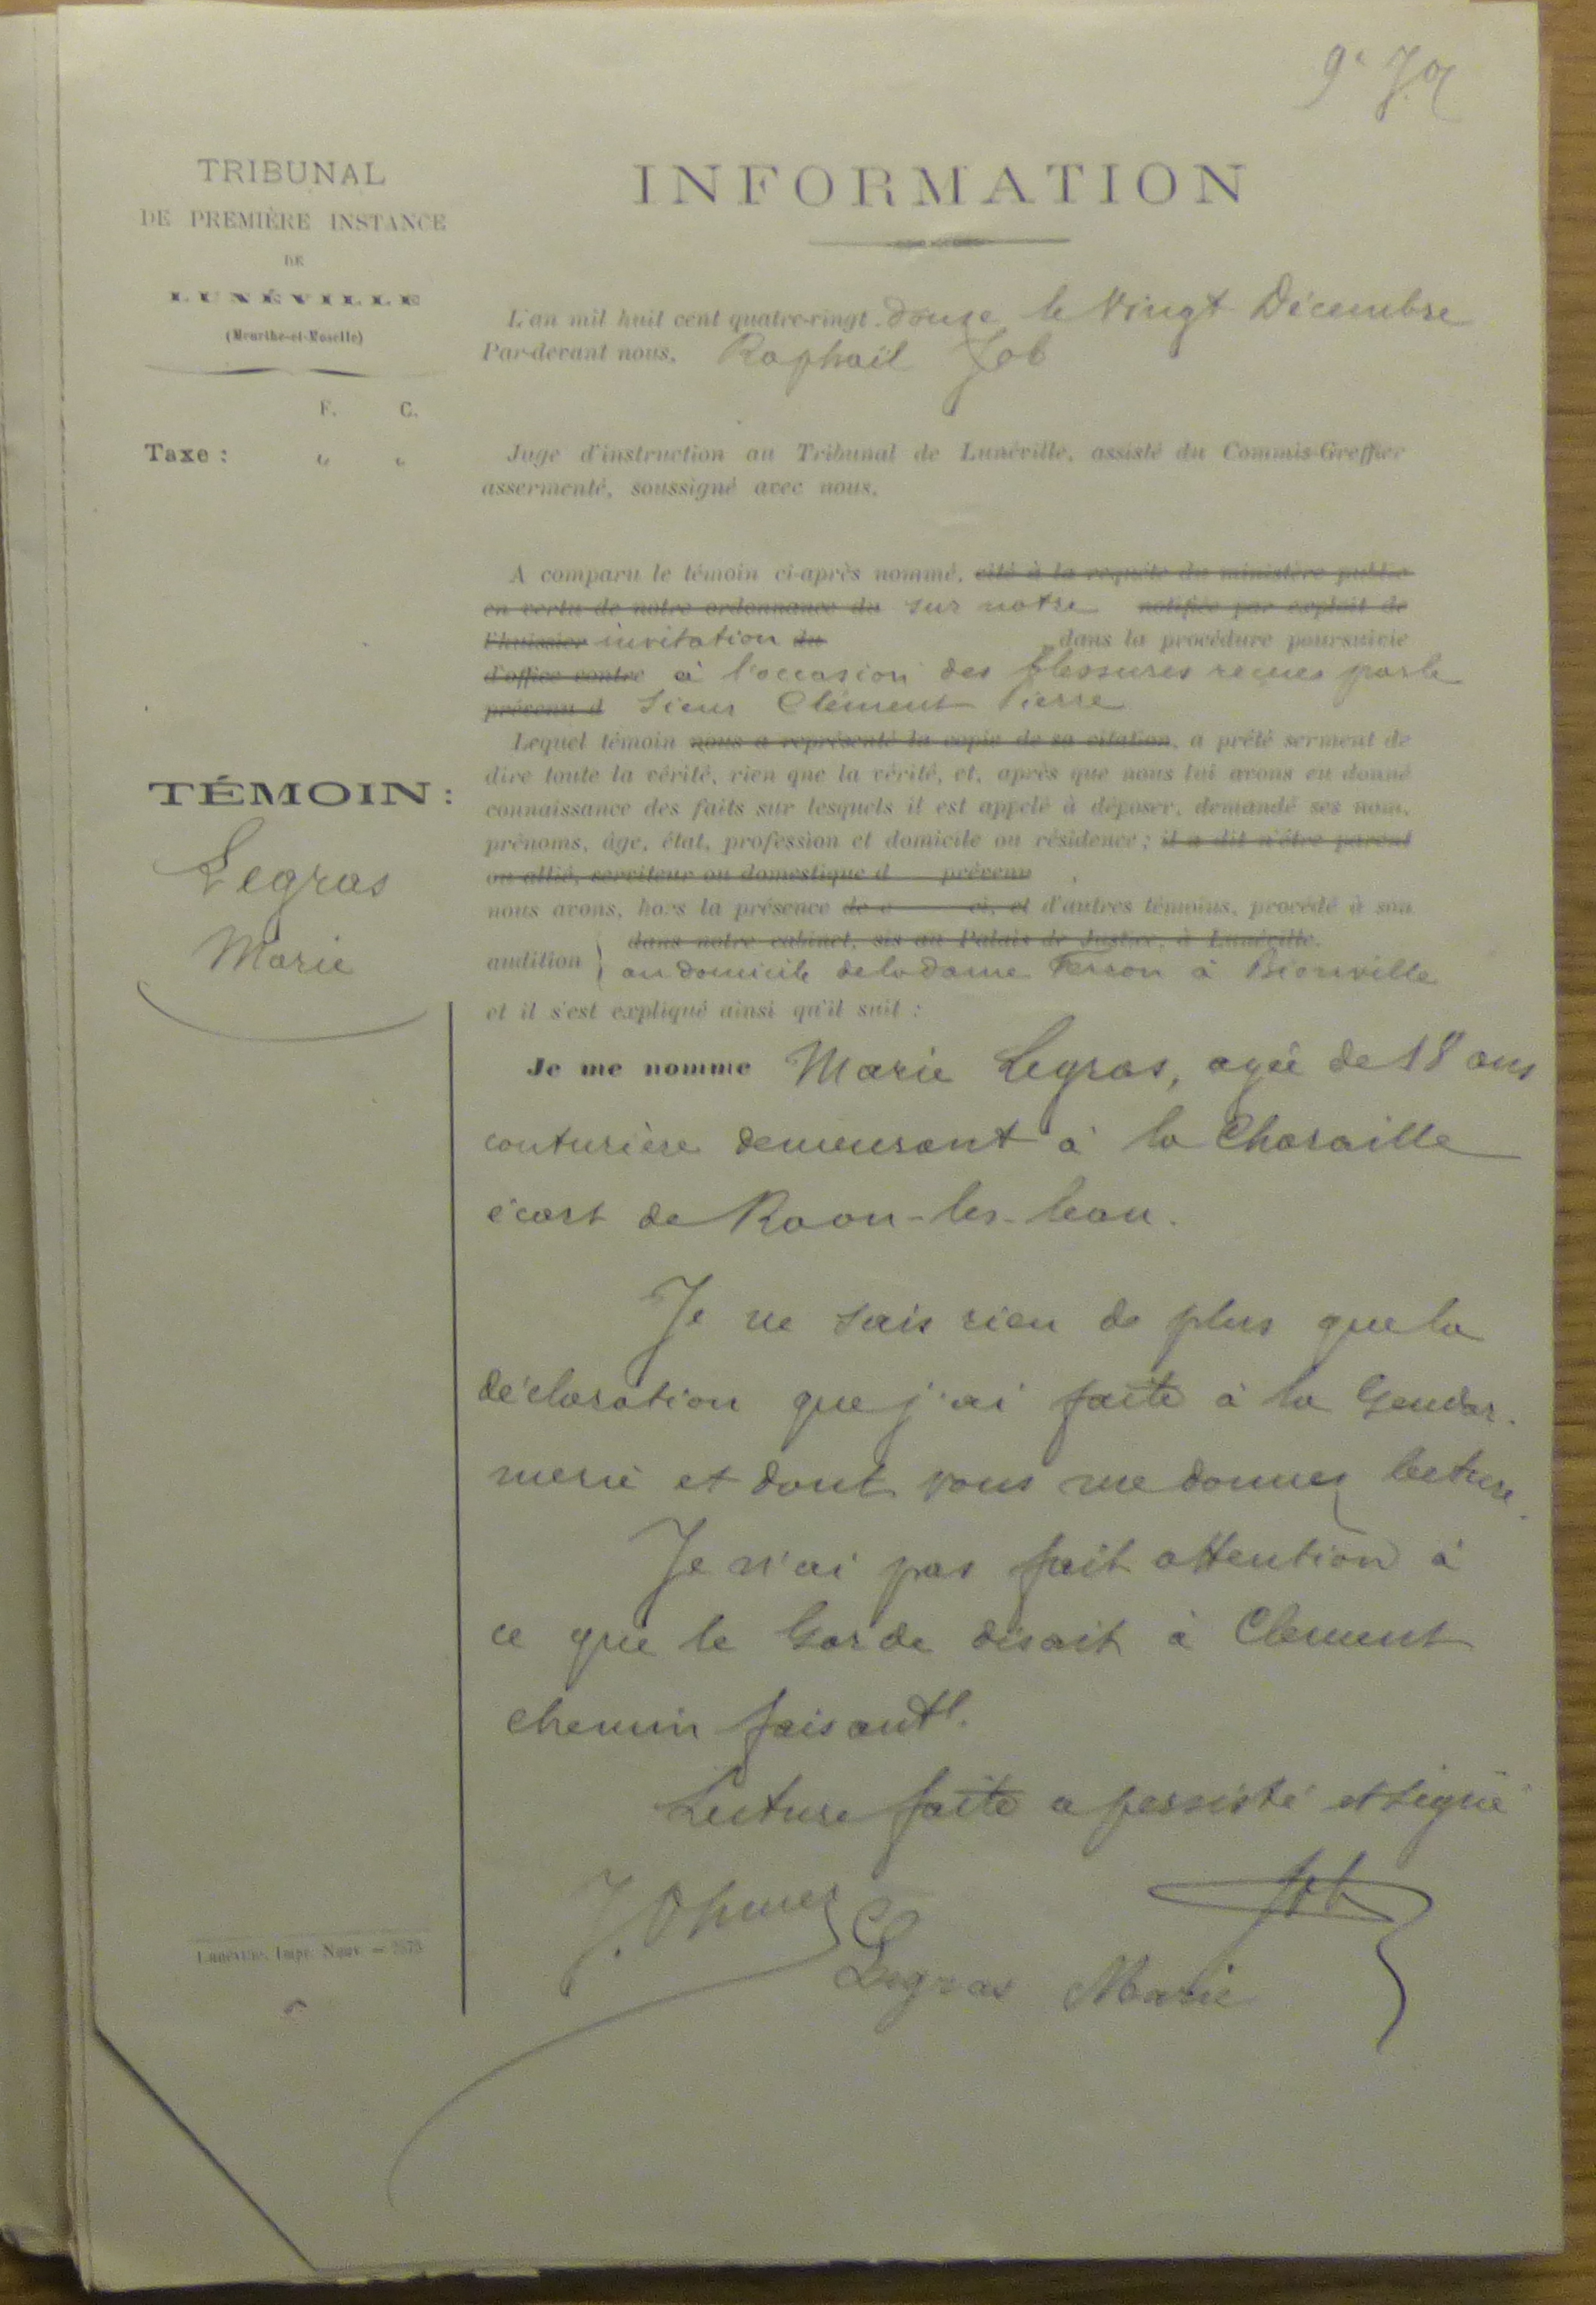 9e
TRIBUNAL
DE PREMIÈRE INSTANCE
DE
LUNÉVILLE
(Meurthe-et-Moselle)
F. C.
Taxe : " "
INFORMATION
L'an mil huit cent quatre-vingt douze le Vingt Décembre
Par-devant nous, Raphaël Job
Juge d'instruction au Tribunal de Lunéville, assisté du Commis-Greffier
assermenté, soussigné avec nous,
A comparu le témoin ci-après nommé, cité à la requête du ministère public
en vertu de notre ordonnance du sur notre notifiée par exploit de
l'huissier invitation du dans la procédure poursuivie
d'office contre à l'occasion des blessures reçues par le
prévenu d Sieur Clément Pierre
Lequel témoin nous a représenté la copie de sa citation, a prêté serment de
dire toute la vérité, rien que la vérité, et, après que nous lui avons eu donné
connaissance des faits sur lesquels il est appelé à déposer, demandé ses nom,
prénoms, âge, état, profession et domicile ou résidence ; il a dit n'être parent
ou allié, serviteur ou domestique d prévenu
nous avons, hors la présence de c ci, et d'autres témoins, procédé à son
dans notre cabinet, sis au Palais de Justice, à Lunéville.
audition } au domicile de la dame Ferson à Bionville
et il s'est expliqué ainsi qu'il suit :
TÉMOIN :
Legras
Marie
Je me nomme Marie Legras, agée de 18 ans
couturière demeurant à la Charaille
écart de Raon-les-leau.
Je ne sais rien de plus que la
déclaration que j'ai faite à la Gendar-
merie et dont vous me donnez lecture.
Je n'ai pas fait attention à
ce que le Garde disait à Clement
chemin faisant.
Lecture faite a persisté et signé
Job
Legras Marie
Lunéville, Impr. Nouv. —